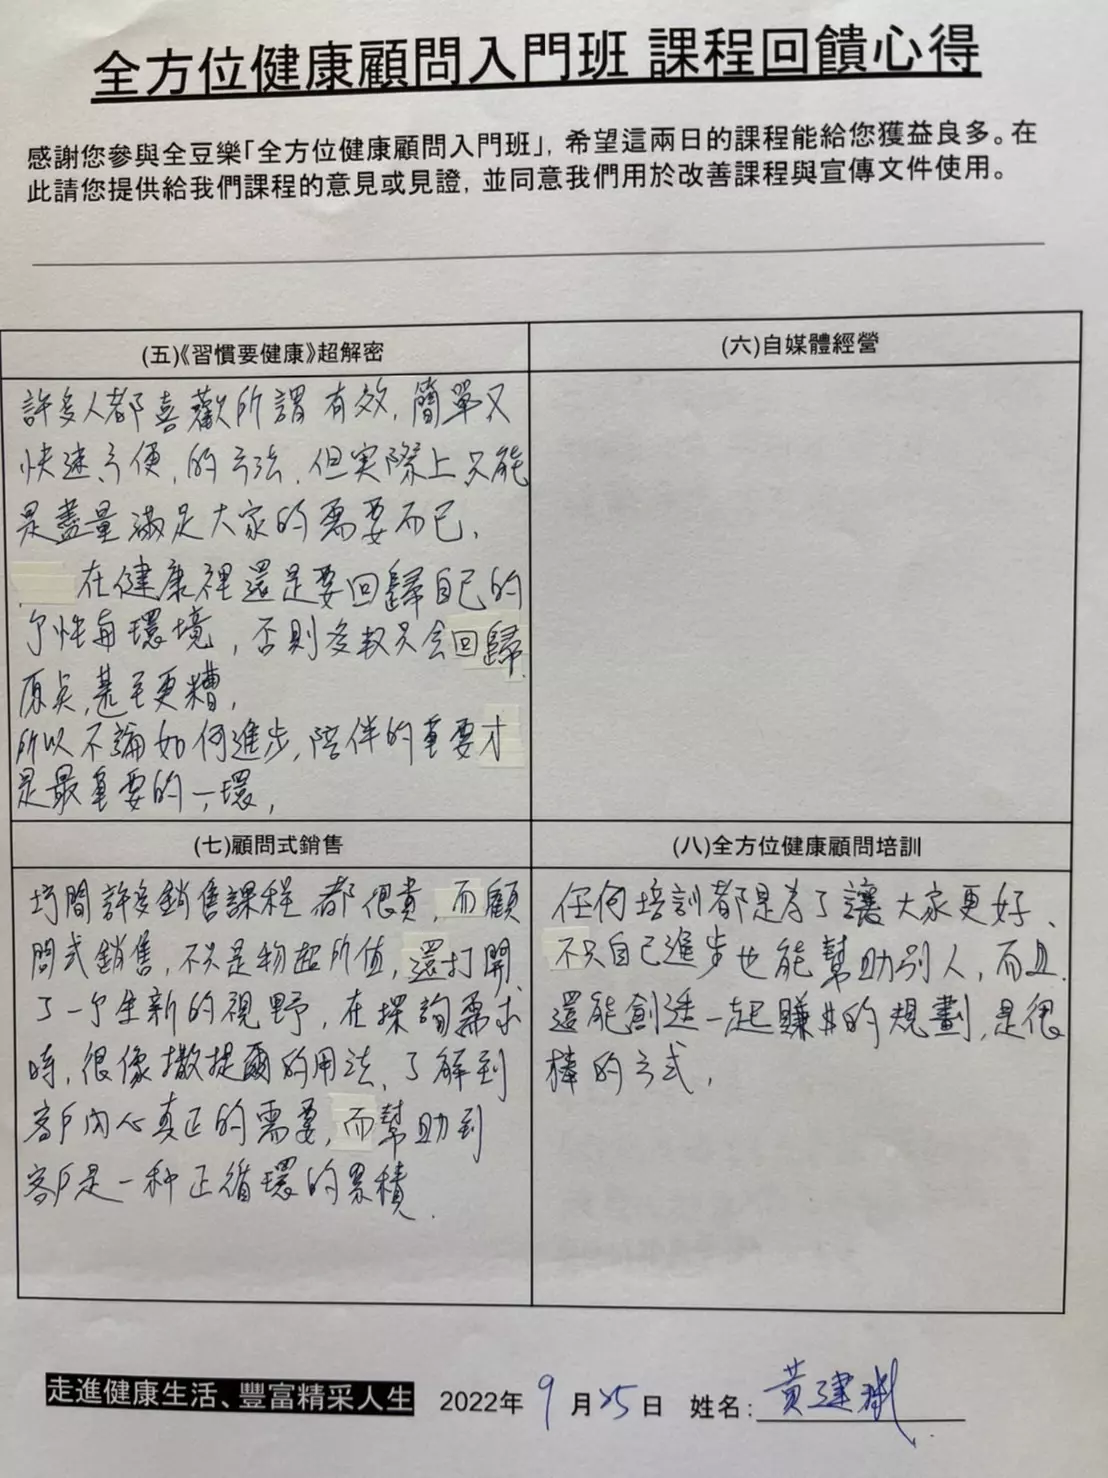 全方位健康顧問入門班 課程回饋心得
感謝您參與全豆樂「全方位健康顧問入門班」, 希望這兩日的課程能給您獲益良多。在
此請您提供給我們課程的意見或見證, 並同意我們用於改善課程與宣傳文件使用。
(五)《習慣要健康》超解密
許多人都喜歡所謂有效, 簡單又
快速方便, 的方法, 但实際上只能
是盡量滿足大家的需要而已,
在健康裡還是要回歸自己的
環境, 否則多數只会回歸
原点, 甚至更糟,
所以不論如何進步, 陪伴的重要才
是最重要的一環,
(六)自媒體經營
(七)顧問式銷售
坊間許多銷售課程都很貴, 而顧
問式銷售, 不只是物超所值, 還打開
了一个全新的視野, 在探詢需求
時, 很像撒提爾的用法, 了解到
客戶內心真正的需要, 而幫助到
客戶是一种正循環的累積.
(八)全方位健康顧問培訓
任何培訓都是為了讓大家更好、
不只自己進步也能幫助別人, 而且
還能創造一起賺$的規劃, 是很
棒的方式,
走進健康生活、豐富精采人生 2022年 9 月 25 日 姓名: 黃建